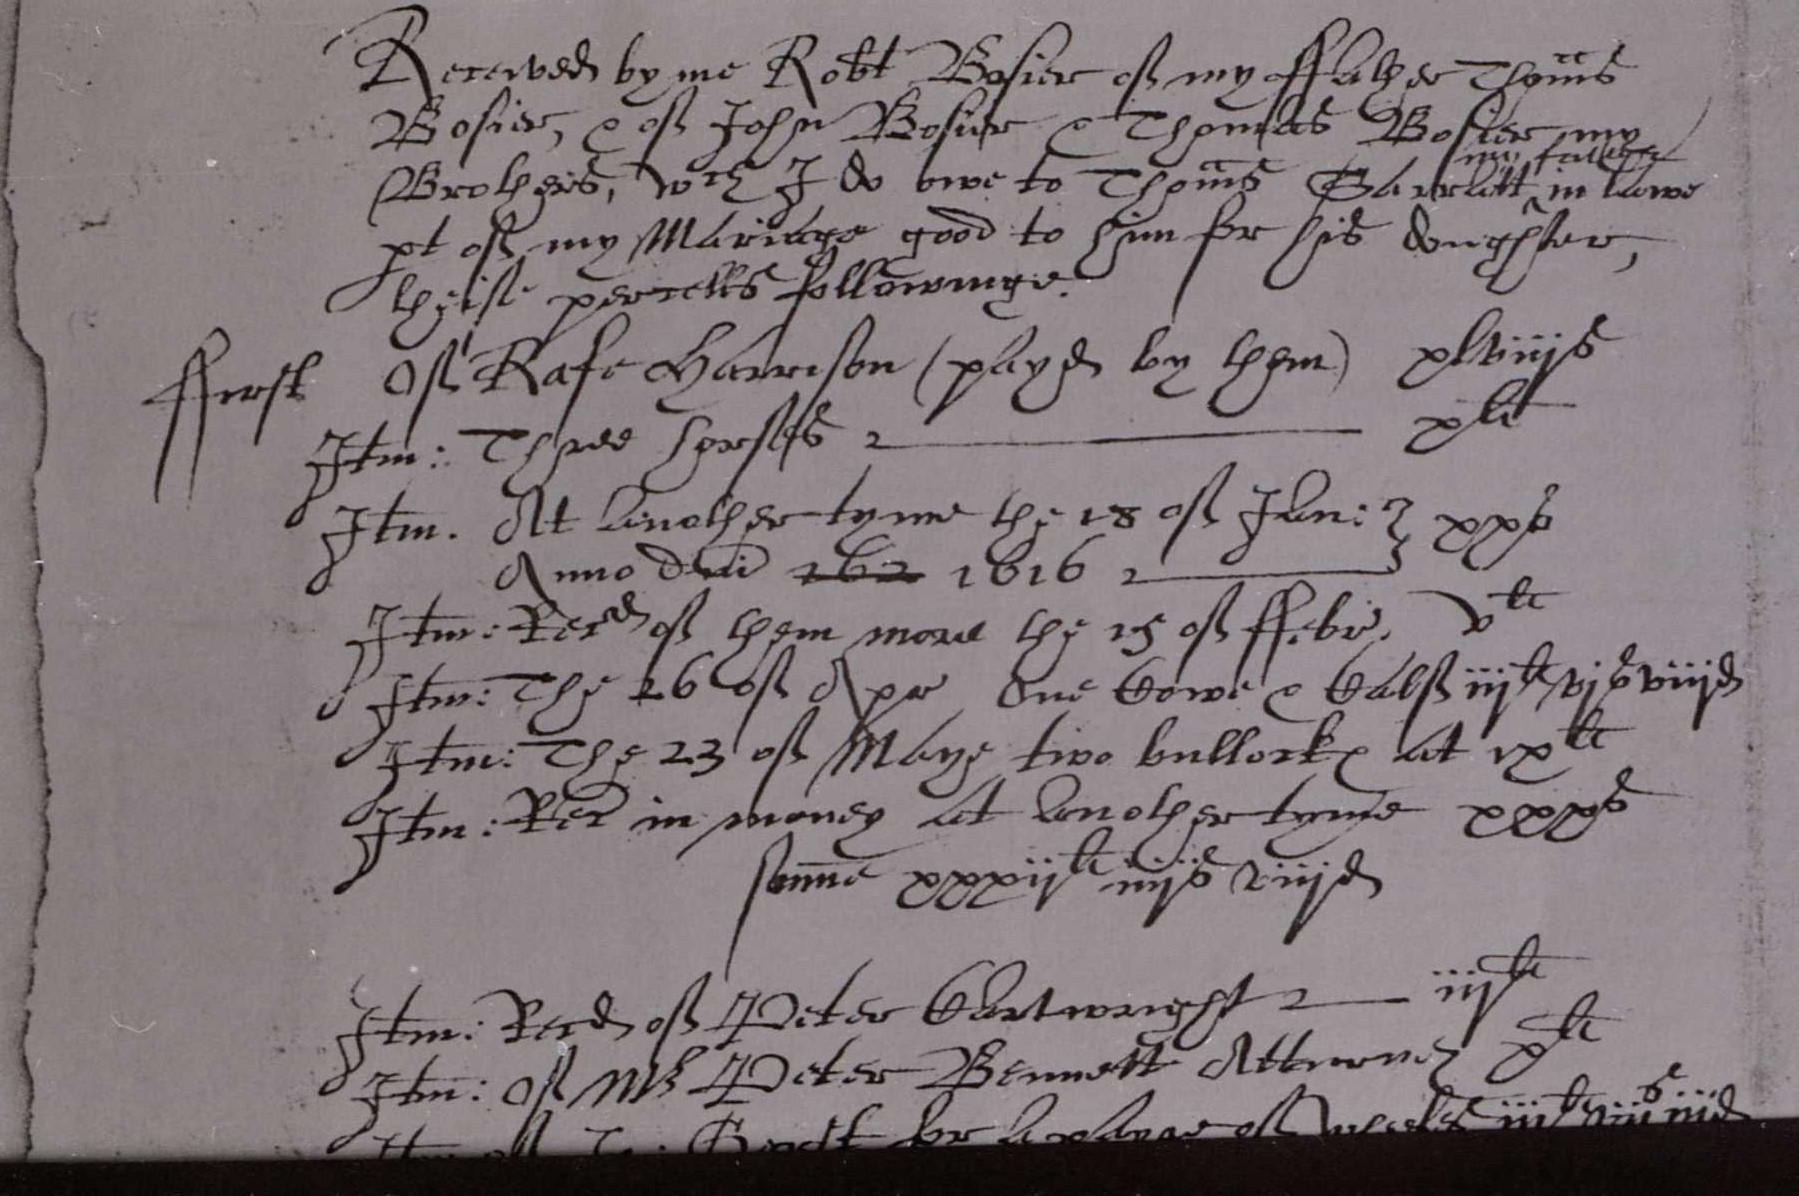 Received by me Robt Bosier of my ffather Thoms
Bosier, & of John Bosier & Thomas Bosier my
Brothers, wch I do owe to Thoms Garratt my father in lawe
pt of my Mariage good to him for his doughter,
theise percells followinge.
ffirst Of Rafe Harrison (payd by them) xlviijs
Itm: Three horses xli
Itm. At another tyme the 18 of Jan:
Anno dni 162 1616 xxxs
Itm: Recd of them more the 15 of ffebr. vli
Itm: The 26 of Apr One Cowe & Calf iijli vjs viijd
Itm: The 23 of Maye two bullocks at ixli
Itm: Rec in money at another tyme xxxs
Summe xxxijli iiijs viijd
Itm: Recd of Peter Cartwright iijli
Itm: Of Mr Peter Bennett Atturney xli
Itm of Jo: for a payre of wheels